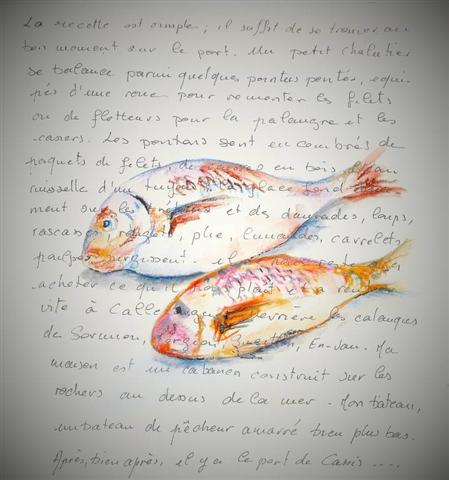 La recette est simple ; il suffit de se trouver au
bon moment sur le port. Un petit chalutier
se balance parmi quelques pointus pentés, équi-
pés d'une roue pour remonter les filets
ou de flotteurs pour la palangre et les
casiers. Les pontons sont encombrés de
paquets de filets, de en bois
ruisselle d'un glace fond
ment sur les et des daurades, loups,
rascasses, rougets, plie, limandes, carrelets,
poulpes surgissent. il
acheter ce qu'il plant
vite à Calle derrière les calanques
de Sormiou, Morgiou, Sugiton, En-Vau. Ma
maison est un cabanon construit sur les
rochers au dessus de la mer. Mon bateau,
un bateau de pêcheur amarré bien plus bas.
Après, bien après, il y a le port de Cassis ....